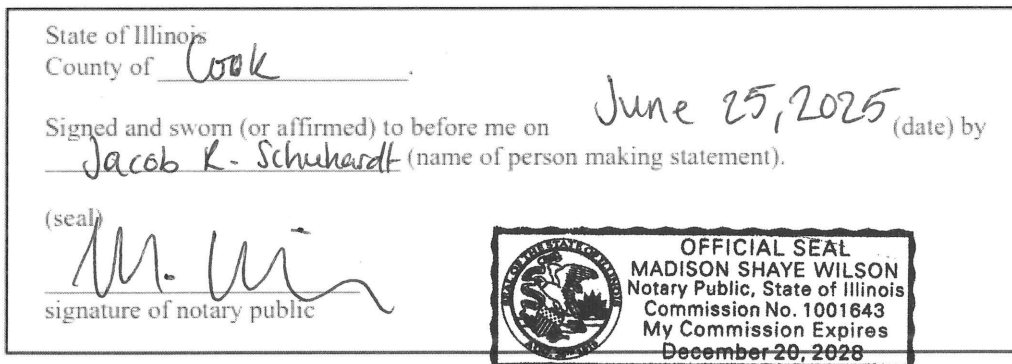 State of Illinois
County of Cook.
Signed and sworn (or affirmed) to before me on June 25, 2025 (date) by
Jacob R. Schuhardt (name of person making statement).
(seal)
M. Wi
signature of notary public
OFFICIAL SEAL
MADISON SHAYE WILSON
Notary Public, State of Illinois
Commission No. 1001643
My Commission Expires
December 20, 2028
SEAL OF THE STATE OF ILLINOIS